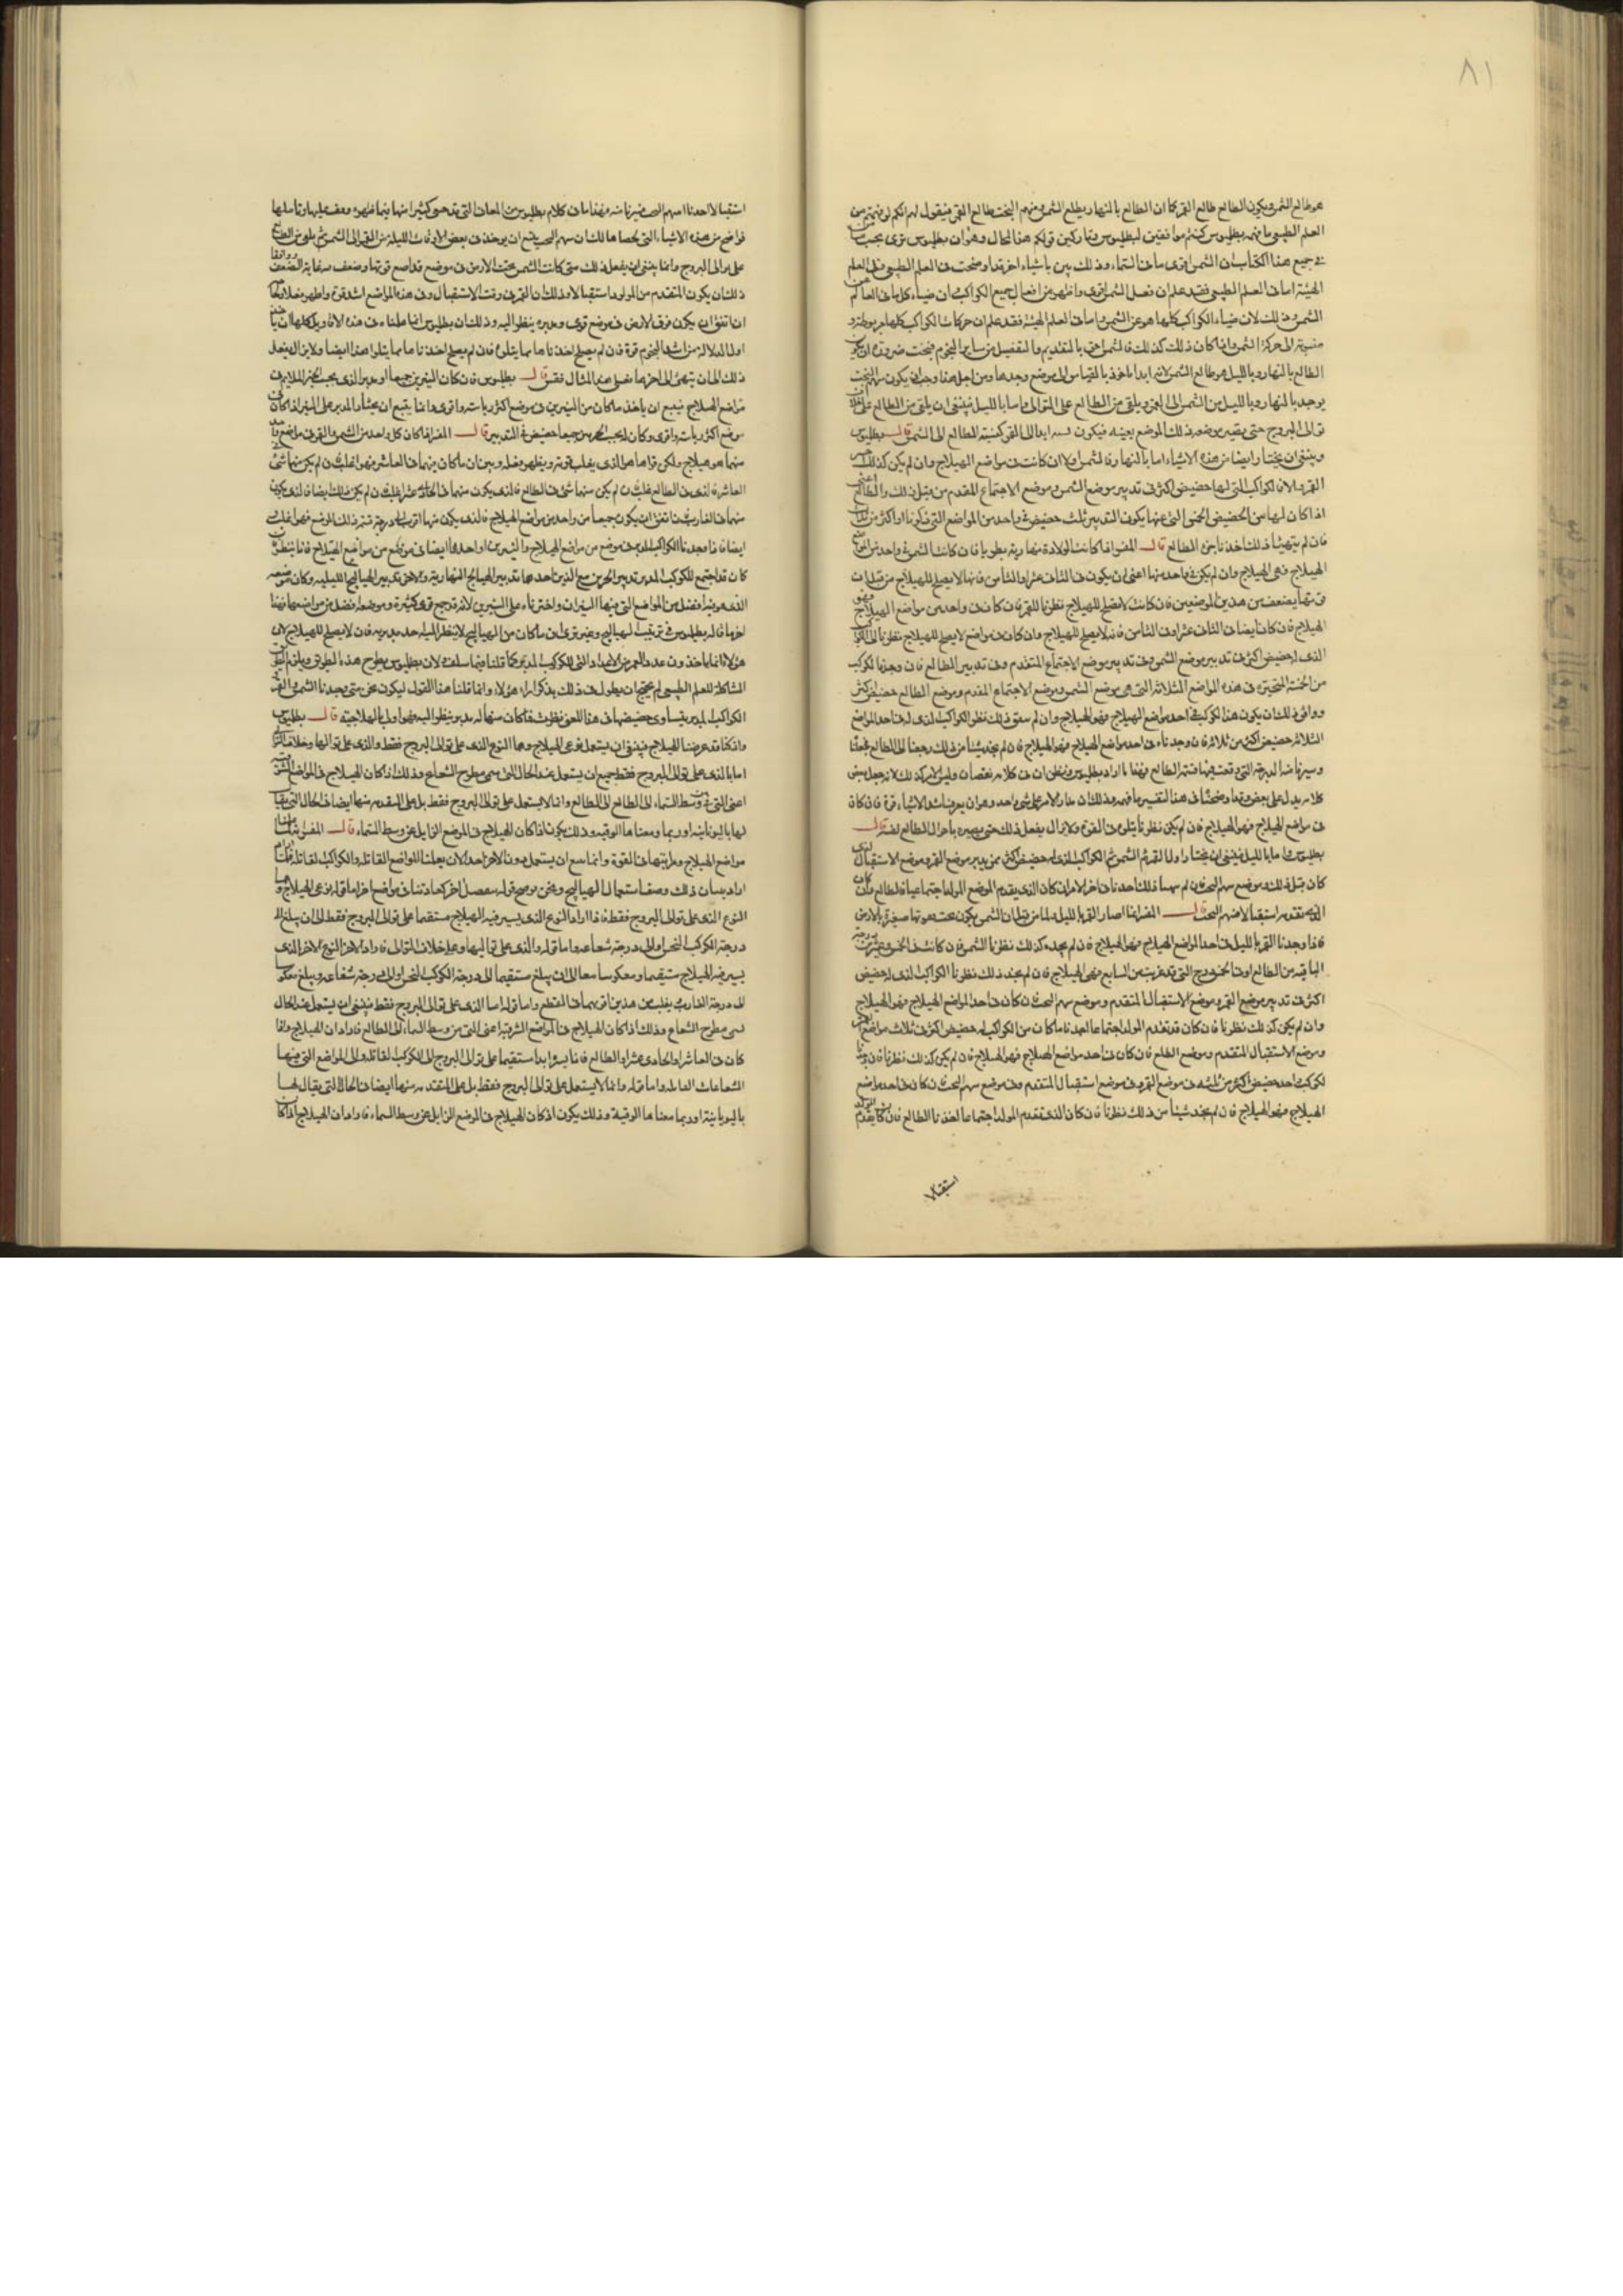 ٨١
هو طالع الشمس ويكون الطالع طالع القمر كما ان الطالع بالنهار يطلع الشمس وسهم البخت طالع القمر فيقول لهم انكم لو فهمتم من
العلم الطبيعي ما فهمه بطلميوس كنتم موافقين لبطلميوس وتاركين قولكم هذا المحال وهو ان بطلميوس نرى بحسب ما
في جميع هذا الكتاب ان الشمس اقوى ما في السماء وذلك بين باشياء اخر قد اوضحت في العلم الطبيعي وفي العلم
الهيئة اما في العلم الطبيعي فقد علم ان فعل الشمس اقوى واظهر من افعال جميع الكواكب ان ضياء كل ما في العالم من
الشمس وذلك لان ضياء الكواكب كلها هو عن الشمس واما في العلم الهيئة فقد علم ان حركات الكواكب كلها مربوطة و
منسوبة الى حركة الشمس واذا كان ذلك كذلك فالشمس احق بالتقديم والتفضيل من ساير النجوم فيجب ضرورة ان يكون
الطالع بالنهار وبالليل هو طالع الشمس لانه ابدا ماخوذ بالقياس الى موضع وجدها ومن اجل هذا وجب ان يكون سهم البخت
يوجد بالنهار وبالليل من الشمس الى القمر ويلقى من الطالع على التوالي واما بالليل فينبغي ان يلقى من الطالع على خلاف
توالي البروج حتى يصير موضعه ذلك الموضع بعينه فيكون ابدا الى القمر كنسبة الطالع الى الشمس قال بطلميوس
وينبغي ان يختار ايضا من هذه الاشياء اما بالنهار فالشمس اولا ان كانت في مواضع الهيلاج وان لم يكن كذلك
القمر والا فالكواكب التي لها حضيض اكثر في تدبير موضع الشمس وموضع الاجتماع المقدم من قبل ذلك والطالع
اذا كان لها من الحضيض الخمس التي عنها يكون التدبير ثلث حضيض في واحد من المواضع التي ذكرنا او اكثر من ذلك
فان لم يتهيأ ذلك اخذنا جزء الطالع قال المفسر اذا كانت الولادة نهارية بطريا فان كانت الشمس في واحد من مواضع
الهيلاج فهي الهيلاج وان لم يكن في واحد منها اعني ان يكون في الثاني عشر او الثامن فانها لا يصلح للهيلاج من قبل ان
قوتها يضعف من هذين الموضعين فان كانت لا تصلح للهيلاج نظرنا للقمر فان كان في واحد من مواضع الهيلاج فهو
الهيلاج فان كان ايضا في الثاني عشر او في الثامن فانه لا يصلح للهيلاج وان كان في مواضع لا يصلح للهيلاج نظرنا الى الكوكب
الذي له حضيض اكثر في تدبير موضع الشمس وفي تدبير موضع الاجتماع المتقدم وفي تدبير الطالع فان وجدنا لكوكب
من الخمسة المتحيرة في هذه المواضع الثلاثة التي هي موضع الشمس وموضع الاجتماع المقدم وموضع الطالع حضيض اكثر
ووافق ذلك ان يكون هذا الكوكب في احد مواضع الهيلاج فهو الهيلاج وان لم يتفق ذلك نظر الكواكب الذي له في احد المواضع
الثلاثة حضيض اكثر من ثلاثة فان وجدناه في احد مواضع الهيلاج فهو الهيلاج فان لم نجد شيئا من ذلك رجعنا الى الطالع فجعلنا
وسيرنا منه الدرجة التي وقعت فيها فتمة الطالع فهذا ما اراد بطلميوس فيظن ان في كلامه نقصان وليس الامر كذلك لانه جعل بعض
كلامه يدل على بعض وقد اوضحنا في هذا التفسير ما فهمه وذلك ان مدار الامر على شيء واحد وهو ان يعرف اشد الاشياء قوة فان كان
في مواضع الهيلاج فهو الهيلاج فان لم يكن نظرنا يتلوه في القوة ولا يزال يفعل ذلك حتى يصيره باحوال الطالع لنفسه قال
بطلميوس واما بالليل فينبغي ان يختار اولا القمر ثم الشمس ثم الكواكب الذي له حضيض اكثر ممن يدبر موضع القمر وموضع الاستقبال الذي
كان قبل ذلك وموضع سهم البخت فان لم يتهيا ذلك اخذنا في اخر الامر ان كان الذي يقدم الموضع المولد اجتماعيا فالطالع وان كان
الذي تقدمه استقبالا فسهم البخت قال المفسر انما صار القمر بالليل والما من قبل ان الشمس يكون تحت ضوءها صغيرة بالارض
فاذا وجدنا القمر بالليل في احد المواضع الهيلاج فهو الهيلاج فان لم نجده كذلك نظرنا الشمس فان كانت في الخمس وعشرين درجة
الباقية من الطالع او في الخمس درج التي قد غربت من السابع فهي الهيلاج فان لم نجد ذلك نظرنا الكواكب الذي له حضيض
اكثر في تدبير موضع القمر وموضع الاستقبال المتقدم وموضع سهم البخت فان كان في احد المواضع الهيلاج فهو الهيلاج
وان لم يكن كذلك نظرنا فان كان قد تقدم المولد اجتماعا اخذنا ما كان من الكواكب له حضيض اكثر في ثلاث مواضع القمر
وموضع الاستقبال المتقدم وموضع الطالع فان كان في احد مواضع الهيلاج فهو الهيلاج فان لم يكن كذلك نظرنا فان وجدنا
لكوكب احد حضيض اكثر من ثلثه في موضع القمر وفي موضع استقبال المتقدم وفي موضع سهم البخت فان كان في احد مواضع
الهيلاج فهو الهيلاج فان لم نجد شيئا من ذلك نظرنا فان كان الذي تقدم المولد اجتماعا اخذنا الطالع فان كان تقدم المولد
استقبالا
استقبالا اخذنا سهم البخت فيرنا منه فهذا ما في كلام بطلميوس من المعاني التي قد حوى كثيرا منها بينها ظهره وقف عليها وتاملها
فواضح من هذه الاشياء التي لخصناها لك ان سهم البخت ينبع ان يوخذ في بعض الاوقات الليلة من القمر الى الشمس ثم يلقى من الطالع
على توالي البروج وانما ينبغي ان يفعل ذلك متى كانت الشمس تحت الارض في موضع قد اضع قوتها وضعف غاية الضعف ووافقا
ذلك ان يكون المتقدم من المولود استقبالا وذلك ان القمر في وقت الاستقبال وفي هذه المواضع اشد قوة واظهر فعلا
ان اتفق ان يكون فوق الارض في موضع قوي وغيره ينظر اليه وذلك ان بطلميوس انما علمناه في هذه الاقاويل كلها ان ناخذ
اولا الدلالة من اشد النجوم قوة فان لم يصلح اخذنا ما يتلوه فان لم يصلح اخذنا ما يتلوا هذا ايضا ولا يزال يفعل
ذلك الى ان ينتهي الى اخرها على هذا المثال فقس قال بطلميوس فان كان النيرين جميعا او غيره الذي بحسب الحيز الملايم في
مواضع الهيلاج فينبع ان ياخذ ما كان من النيرين في موضع اكثر رياسة واقوى وانما ينبع ان يختار المدبر على النير اذا كان في
موضع اكثر رياسة واقوى وكان له بحسب الحيزين جميعا حضيض في التدبير قال المفسر اذا كان كل واحد من الشمس والقمر في مواضع
منهما هو هيلاج ولكن قواها هو الذي يغلب قوته ويظهر فعله وبين ان ما كان منهما في العاشر فهو اغلب فان لم يكن منهما شيء
العاشر فالذي في الطالع غلب فان لم يكن منهما شيء في الطالع فالذي يكون منهما في الحادي عشر اغلب فان لم يكن ذلك ايضا فالذي يكون
منهما في الغارب فان اتفق ان يكون جميعا من واحد من مواضع الهيلاج فالذي يكون منهما اقرب الى درجة قسمة ذلك الموضع فهو اغلب و
ايضا فاذا وجدنا الكواكب المدبر في موضع من مواضع الهيلاج والنيرين او احدهما ايضا في موضع من مواضع الهيلاج فانا ننظر فان
كان قد اجتمع للكوكب المدبر تدبير الحيزين مع الذين احدهما تدبير الهيالج النهارية والاخر تدبير الهيالج الليلية وكان موضعه
الذي هو فيه افضل من المواضع التي فيها النيران واخترناه على النيرين لانه قد جمع قوى كثيرة وموضعه افضل من مواضعها فهذا
اخر ما قاله بطلميوس في ترتيب الهياليج وغيره ترى ان ما كان من الهياليج لا ينظر اليه احد مدبريه فان لا يصلح للهيلاج لان
هؤلاء انما ياخذون عدد العمر من الاعداد التي للكوكب المدبر كما قلنا فيما سلف ولان بطلميوس يطرح هذا الطريق ويلزم الطريق
المشاكلة للعلم الطبيعي لم يحتج ان يطول في ذلك بذكر اراء هؤلاء وانما قلنا هذا القول ليكون نحن متى وجدنا الشمس والقمر
الكواكب المدبر يتساوى حضيضها في هذا اللحق نظرت فما كان منهما له مدبر ينظر اليه فهو اولى بالهلاجية قال بطلميوس
واذ كنا قد عرضنا للهيلاج فينبغي ان يستعمل نوعى الهيلاج وهما النوع الذي على توالى البروج فقط والذي على توالها وخلاف التوالي
اما بالذي على توالي البروج فقط جميع ان يستعمل عند الحال التي سمى مطرح الشعاع وذلك اذا كان الهيلاج في المواضع الشرقية
اعنى التي من وسط السماء الى الطالع الى الطالع وانما لا يستعمل على توالي البروج فقط بل على المتقدمة منها ايضا في الحال التي يقال
لها باليونانية اوريما ومعناها الوقية وذلك يكون اذا كان الهيلاج في الموضع الزايل عن وسط السماء قال المفسر
مواضع الهيلاج ومراتبها في القوة وانما ينبع ان يستعمل دون الاخر اخذ الان يعلمنا المواضع القاتلة والكواكب القاتلة فلما
اراد بيان ذلك وصف استعمالها الهياليج ونحن نوضح قوله بفصل اخر كعادتنا في مواضع اخر اما قوله نوعى الهيلاج وهما
النوع الذي على توالي البروج فقط فاذا اراد النوع الذي يسير فيه الهيلاج مستقيما على توالي البروج فقط الى ان يبلغ الى
درجة الكوكب النحس او الى درجة شعاعه واما قوله والذي على تواليها وعلى خلاف التوالي فاراد الاخر النوع الاخر الذي
يسير فيه الهيلاج مستقيما ومعكوسا معا الى ان يبلغ مستقيما الى درجة الكوكب النحس او الى درجة شعاعه ويبلغ معكوسا
الى درجة الغارب يغلب من هذين اقربهما في القطع واما قوله اما الذي على توالي البروج فقط فينبغي ان يستعمل عند الحال
تسمى مطرح الشعاع وذلك اذا كان الهيلاج في المواضع الشرقية اعنى التي من وسط السماء الى الطالع فاراد ان الهيلاج اذا
كان في العاشر او الحادي عشر او الطالع فانا نسيره ابدا مستقيما على توالي البروج الى الكوكب القاتلة والى المواضع التي فيها
الشعاعات القاتلة واما قوله وانما لا يستعمل على توالي البروج فقط بل على المتقدمة منها ايضا في الحال التي يقال لها
باليونانية اوريما معناها الوقية وذلك يكون اذا كان الهيلاج في الموضع الزايل عن وسط السماء فاراد ان الهيلاج اذا كان